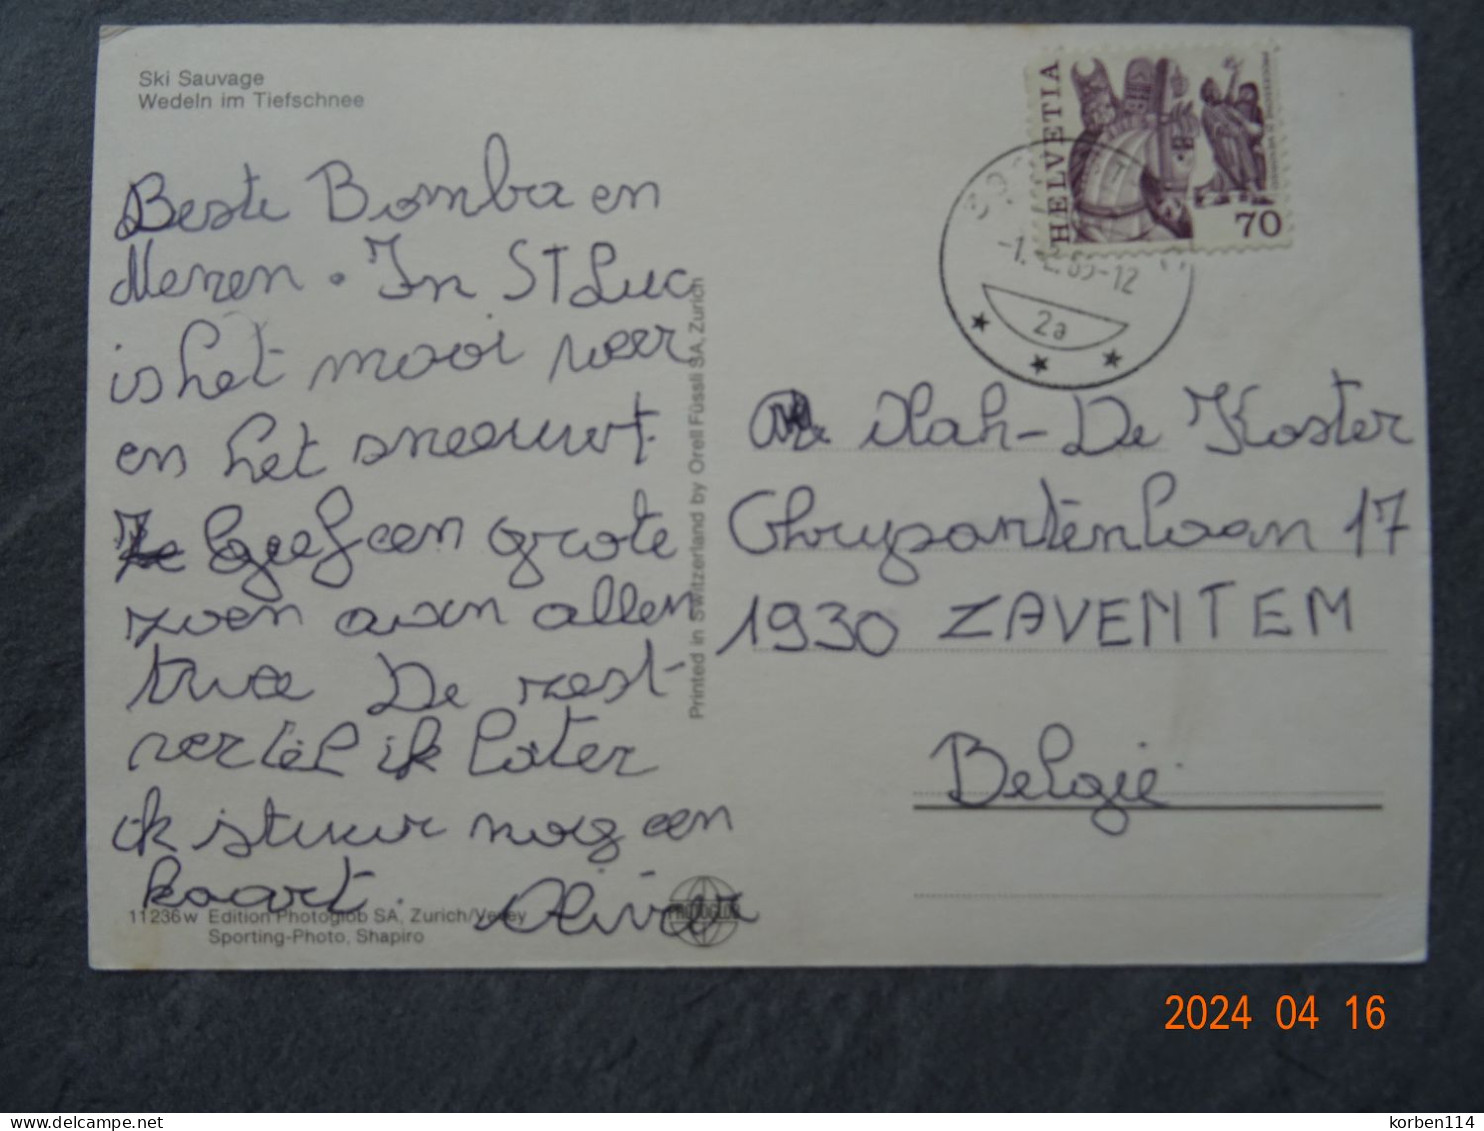 Ski Sauvage
Wedeln im Tiefschnee
Beste Bomba en
Meren. In ST Luc
is het mooi weer
en het sneeuwt.
Ik geef een grote
zoen aan allen
twee De rest
vertel ik later
ik stuur nog een
kaart. Olivier
11236w Edition Photoglob SA, Zurich/Vevey
Sporting-Photo, Shapiro
PHOTOGLOB
Printed in Switzerland by Orell Füssli SA, Zurich
HELVETIA
70
2a
De Koster
Chrysantenlaan 17
1930 ZAVENTEM
België
2024 04 16
korben114